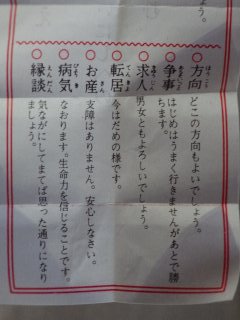 よう。
○方向 ほうこう どこの方向もよいでしょう。
○争事 あらそいごと はじめはうまく行きませんがあとで勝
ちます。
○求人 男女ともよろしいでしょう。
○転居 てんきょ 今はだめの様です。
○お産 さん 支障はありません。安心しなさい。
○病気 びょうき なおります。生命力を信じることです。
○縁談 えんだん 気ながにしてまてば思った通りになり
ましょう。